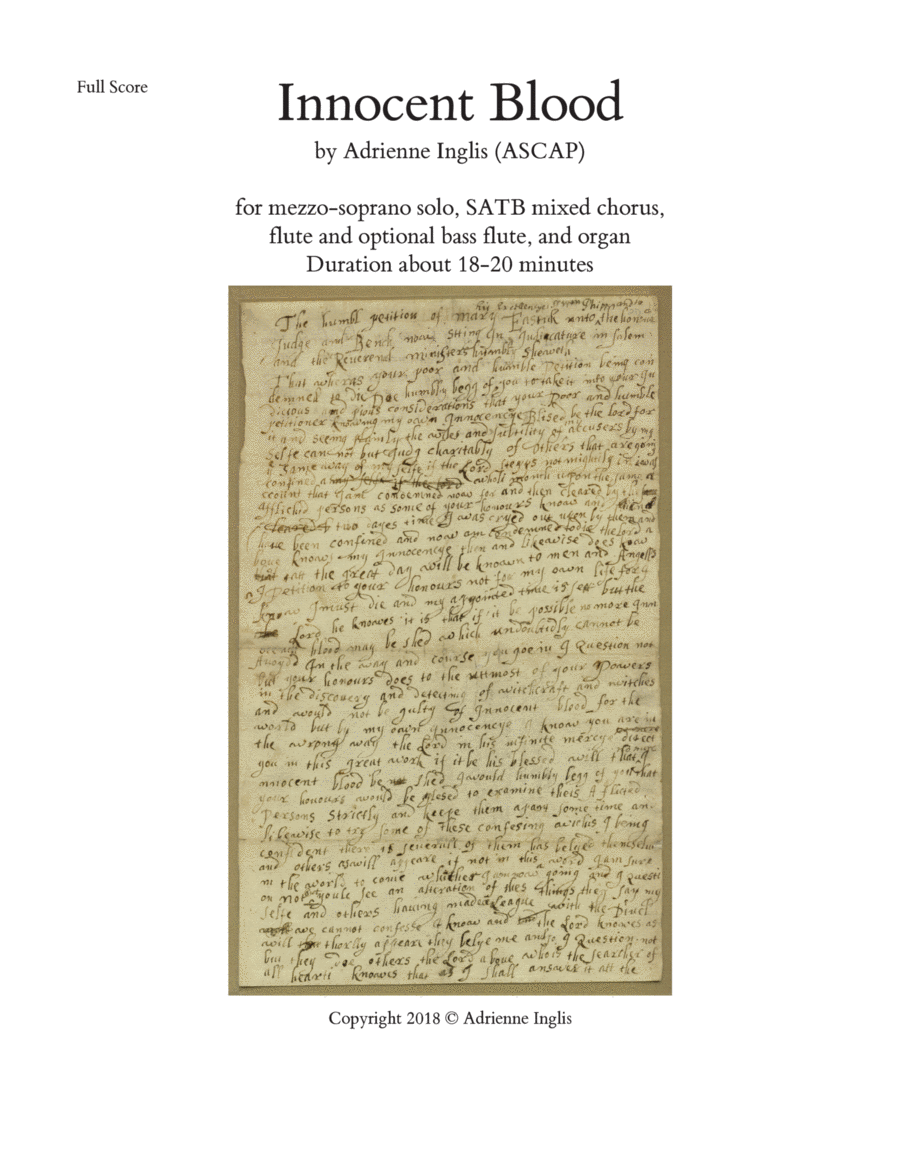 Full Score
Innocent Blood
by Adrienne Inglis (ASCAP)
for mezzo-soprano solo, SATB mixed chorus,
flute and optional bass flute, and organ
Duration about 18-20 minutes
The humbl petition of mary Eastik unto the honour
Judge and Bench now sting In Judicature in Salem
and the Reverend ministers humbly sheweth
That wheras your poor and humble Petition being con
demned to die Doe humbly begg of you to take it into your Ju
dicious and pious considerations that your Poor and humble
petitioner knowing my own Innocencye Blised be the lord for
it and seeing plainly the wiles and subtility of accusers by my
selfe cannot but Judg charitably of others that are going
same way of my selfe if the Lord stepps not mightily in i was
confined a whole month upon the same a
ccount that I am condemned now for and then cleared by the
afflicted persons as some of your honours know and
two dayes time I was cryed out upon by them and
have been confined and now am condemned to die the lord a
boue knows my Innocencye then and likewise does know
att the great day will be known to men and Angells
I Petition to your honours not for my own life for I
know I must die and my appointed time is sett but the
Lord he knowes it is that if it be possible no more Inn
ocent blood may be shed which undoubtidly cannot be
Avoydd In the way and course you goe in I Question not
but your honours does to the uttmost of your Powers
in the discovery and detecting of witchcraft and witches
and would not be gulty of Innocent blood for the
world but by my own Innocencye I know you are in
the wrong way the Lord in his infinite mercye direct
you in this great work if it be his blessed will that
nnocent blood be shed I would humbly begg of you that
your honours would be plesed to examine theis Aflicted
Persons strictly and keepe them apart some time an
likewise to try some of these confesing wichis I being
confident there is severall of them has belyed themselves
and others as will appeare if not in this word I am sure
in the world to come whither I am now going and I Questi
on not youle see an alteration of thes things they say my
selfe and others having made a League with the Divel
we cannot confesse I know and the Lord knowes as
will thorlly appeare they belye me and so I Question not
but they doe others the Lord aboue who is the searcher of
all hearts knowes that as I shall answer it att the
Copyright 2018 © Adrienne Inglis